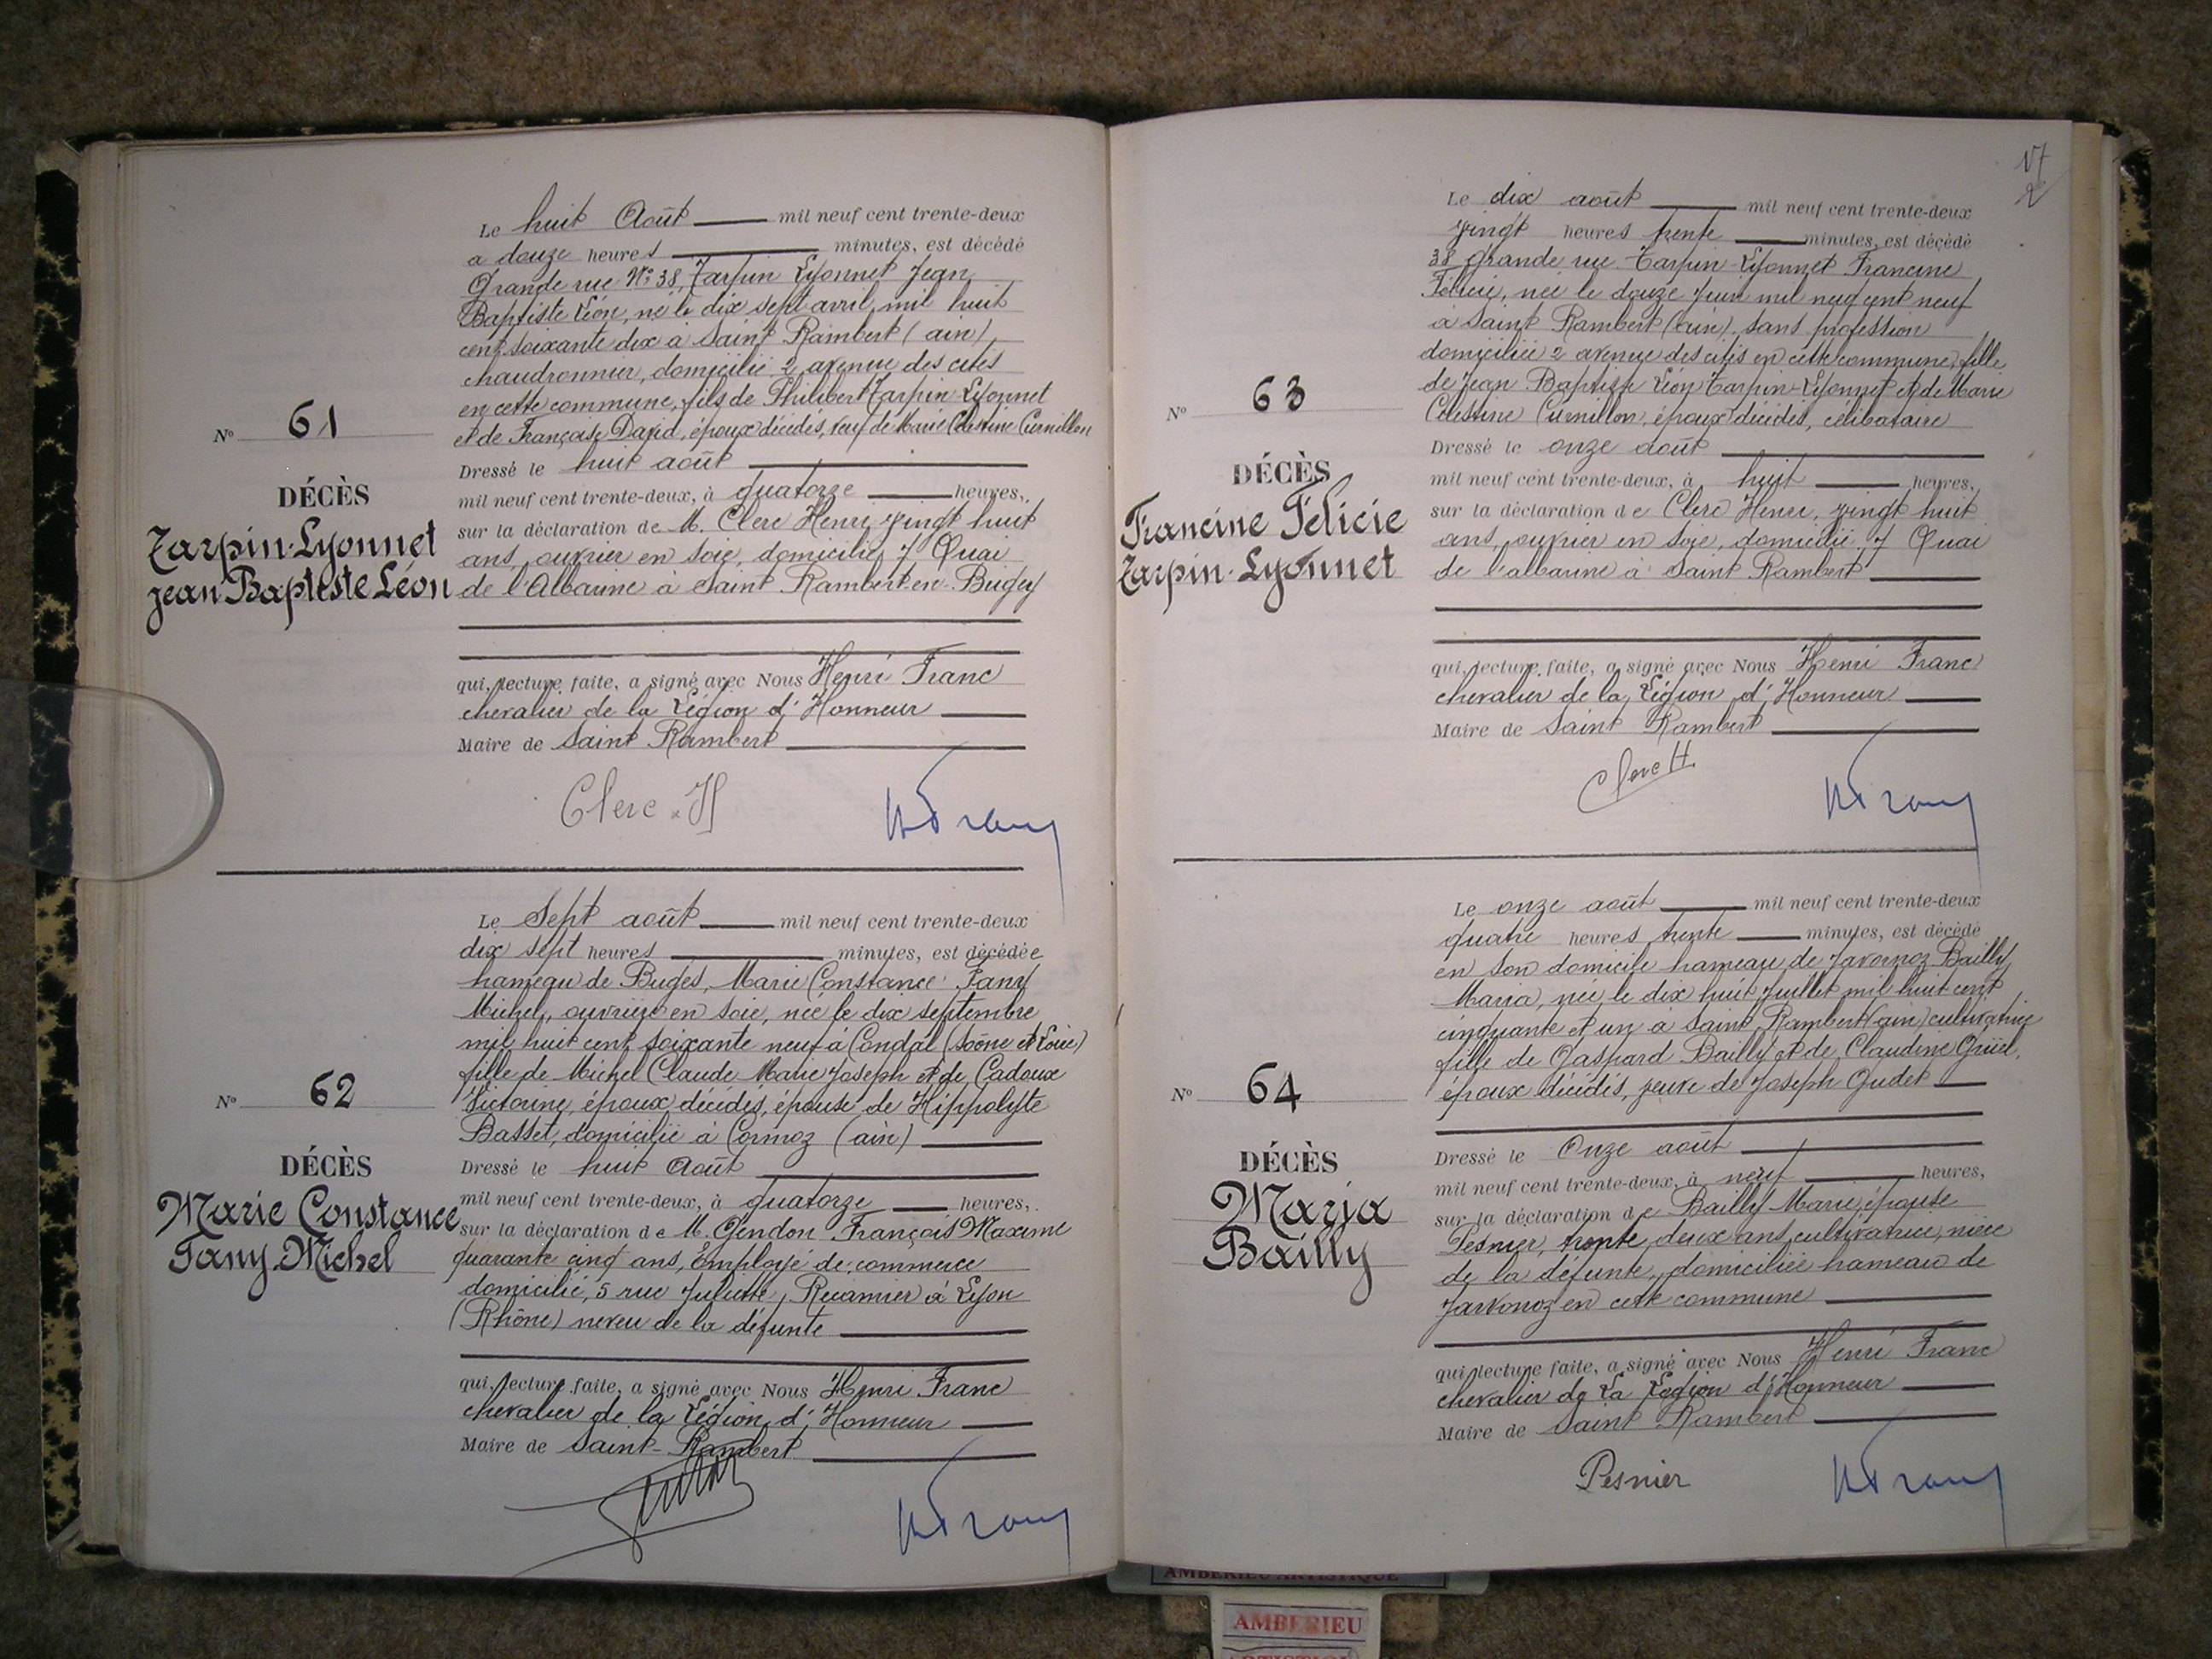 Le huit Août mil neuf cent trente-deux
a douze heures minutes, est décédé
Grande rue N° 38, Tarpin Lyonnet Jean
Baptiste Léon, né le dix sept avril mil huit
cent soixante dix à Saint Rambert (ain)
chaudronnier, domicilié 2 avenue des cités
en cette commune, fils de Philibert Tarpin-Lyonnet
et de Françoise David, époux décédés, veuf de Marie Célestine Curnillon
N° 61
Dressé le huit août
DÉCÈS
mil neuf cent trente-deux, à quatorze heures,
Tarpin-Lyonnet
sur la déclaration de M. Clerc Henri, vingt huit
ans, ouvrier en soie, domicilié 7 Quai
jean Bapteste Léon
de l'Albarine à Saint Rambert-en-Bugey
qui, lecture faite, a signé avec Nous Henri Franc
chevalier de la Légion d'Honneur
Maire de Saint Rambert
Clerc H
Le Sept août mil neuf cent trente-deux
dix sept heures minutes, est décédée
hameau de Buges, Marie Constance Fany
Michel, ouvrière en soie, née le dix septembre
mil huit cent soixante neuf à Condal (Saône et Loire)
fille de Michel Claude Marie Joseph et de Cadoux
N° 62
Victorine, époux décédés, épouse de Hippolyte
Basset, domicilié à Cormoz (ain)
DÉCÈS
Dressé le huit Août
mil neuf cent trente-deux, à quatorze heures,
Marie Constance
sur la déclaration de M. Gendon François Maxime
Fany Michel
quarante cinq ans, Employé de commerce
domicilié, 5 rue Juliette Récamier à Lyon
(Rhône) neveu de la défunte
qui, lecture faite, a signé avec Nous Henri Franc
chevalier de la Légion d'Honneur
Maire de Saint-Rambert
17
2
Le dix août mil neuf cent trente-deux
vingt heures trente minutes, est décédé
38 Grande rue Tarpin-Lyonnet Francine
Félicie, née le douze Juin mil neuf cent neuf
à Saint Rambert (ain), sans profession
domiciliée 2 avenue des cités en cette commune, fille
de Jean Baptiste Léon Tarpin-Lyonnet et de Marie
N° 63
Célestine Curnillon, époux décédés, célibataire
Dressé le onze août
DÉCÈS
mil neuf cent trente-deux, à huit heures,
Francine Félicie
sur la déclaration de Clerc Henri, vingt huit
ans, ouvrier en soie, domicilié 7 Quai
Tarpin-Lyonnet
de l'albarine à Saint Rambert
qui, lecture faite, a signé avec Nous Henri Franc
chevalier de la Légion d'Honneur
Maire de Saint Rambert
Clerc H.
Le onze août mil neuf cent trente-deux
quatre heures trente minutes, est décédé
en son domicile hameau de Javornoz Bailly
Maria, née le dix huit Juillet mil huit cent
cinquante et un à Saint Rambert (ain) cultivatrice
fille de Gaspard Bailly et de Claudine Grüel,
N° 64
époux décédés, veuve de Joseph Gudet
DÉCÈS
Dressé le Onze août
mil neuf cent trente-deux, à neuf heures,
Maria
sur la déclaration de Bailly Marie, épouse
Bailly
Pesnier, trente deux ans, cultivatrice, nièce
de la défunte, domiciliée hameau de
Javornoz en cette commune
qui, lecture faite, a signé avec Nous Henri Franc
chevalier de La Légion d'Honneur
Maire de Saint Rambert
Pesnier
AMBERIEU ARTISTIQUE
AMBERIEU